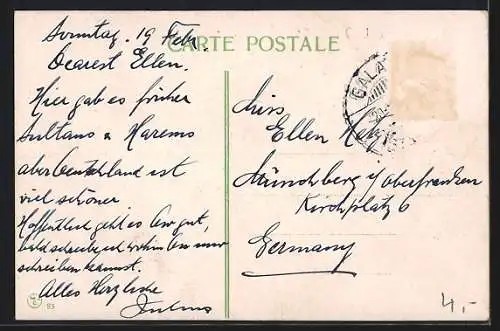 CARTE POSTALE
Sonntag. 19 Febr.
Dearest Ellen.
Hier gab es früher
Sultans & Harems
aber Deutschland ist
viel schöner
Hoffentlich geht es Dir gut,
bald schreibe ich wohin Du mir
schreiben kannst.
Alles Herzliche
Julius
GALA
Miss
Ellen
Münchberg i/ Oberfranken
Kirchplatz 6
Germany
85
4,-